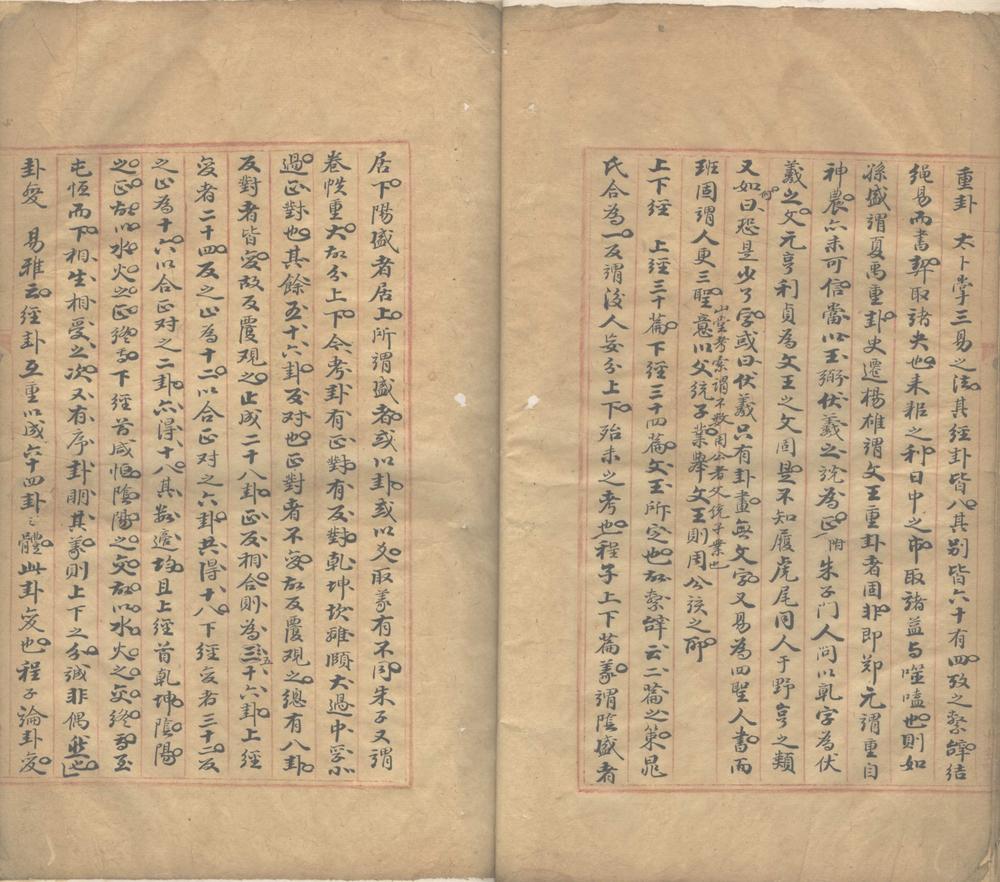 重卦　太卜掌三易之法其經卦皆八其别皆六十有四攷之繫辭結
繩易而書契取諸夬也耒耜之利日中之市取諸益与噬嗑也則如
孫盛謂夏禹重卦史遷楊雄謂文王重卦者固非即郑元謂重自
神農亦未可信當以王弼伏羲之説為正附朱子門人问以乾字為伏
羲之文元亨利貞為文王之文固是不知履虎尾同人于野亨之類
又如何曰恐是少了字或曰伏羲只有卦畫無文字又易為四聖人書而
班固謂人更三聖意以父統子業舉文王則周公該之耶
山堂考索謂不数周公者父統子業也
上下經　上經三十篇下經三十四篇文王所定也故繫辭云二篇之策晁
氏合為一反謂後人妄分上下殆未之考也程子上下篇義謂陰盛者
居下陽盛者居上所謂盛者或以卦或以爻取義有不同朱子又謂
卷帙重大故分上下今考卦有正對有反對乾坤坎離頤大過中孚小
過正對也其餘五十六卦反对也正對者不変故反覆观之總有八卦
反對者皆变故反覆观之止成二十八卦正反相合則為三十六卦上經
変者二十四反之止為十二以合正对之六卦共得十八下經変者三十二反
之止為十六以合正对之二卦亦得十八其数適均且上經首乾坤陰陽
之正故以水火之正終焉下經首咸恒陰陽之交故以水火之交終焉至
屯恒而下相生相受之次又有序卦明其義則上下之分誠非偶然也
卦変　易雅云經卦互重以成六十四卦之體此卦変也程子論卦变